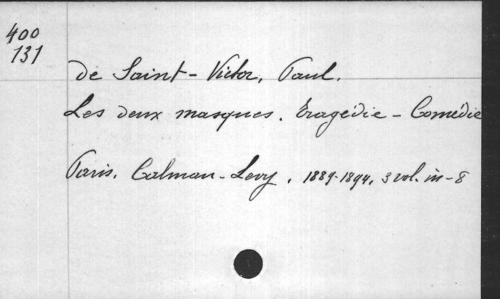 400
131
de Saint-Victor, Paul.
Les deux masques. Tragédie - Comédie
Paris. Calman-Levy. 1889-1894, 3 vol. in-8